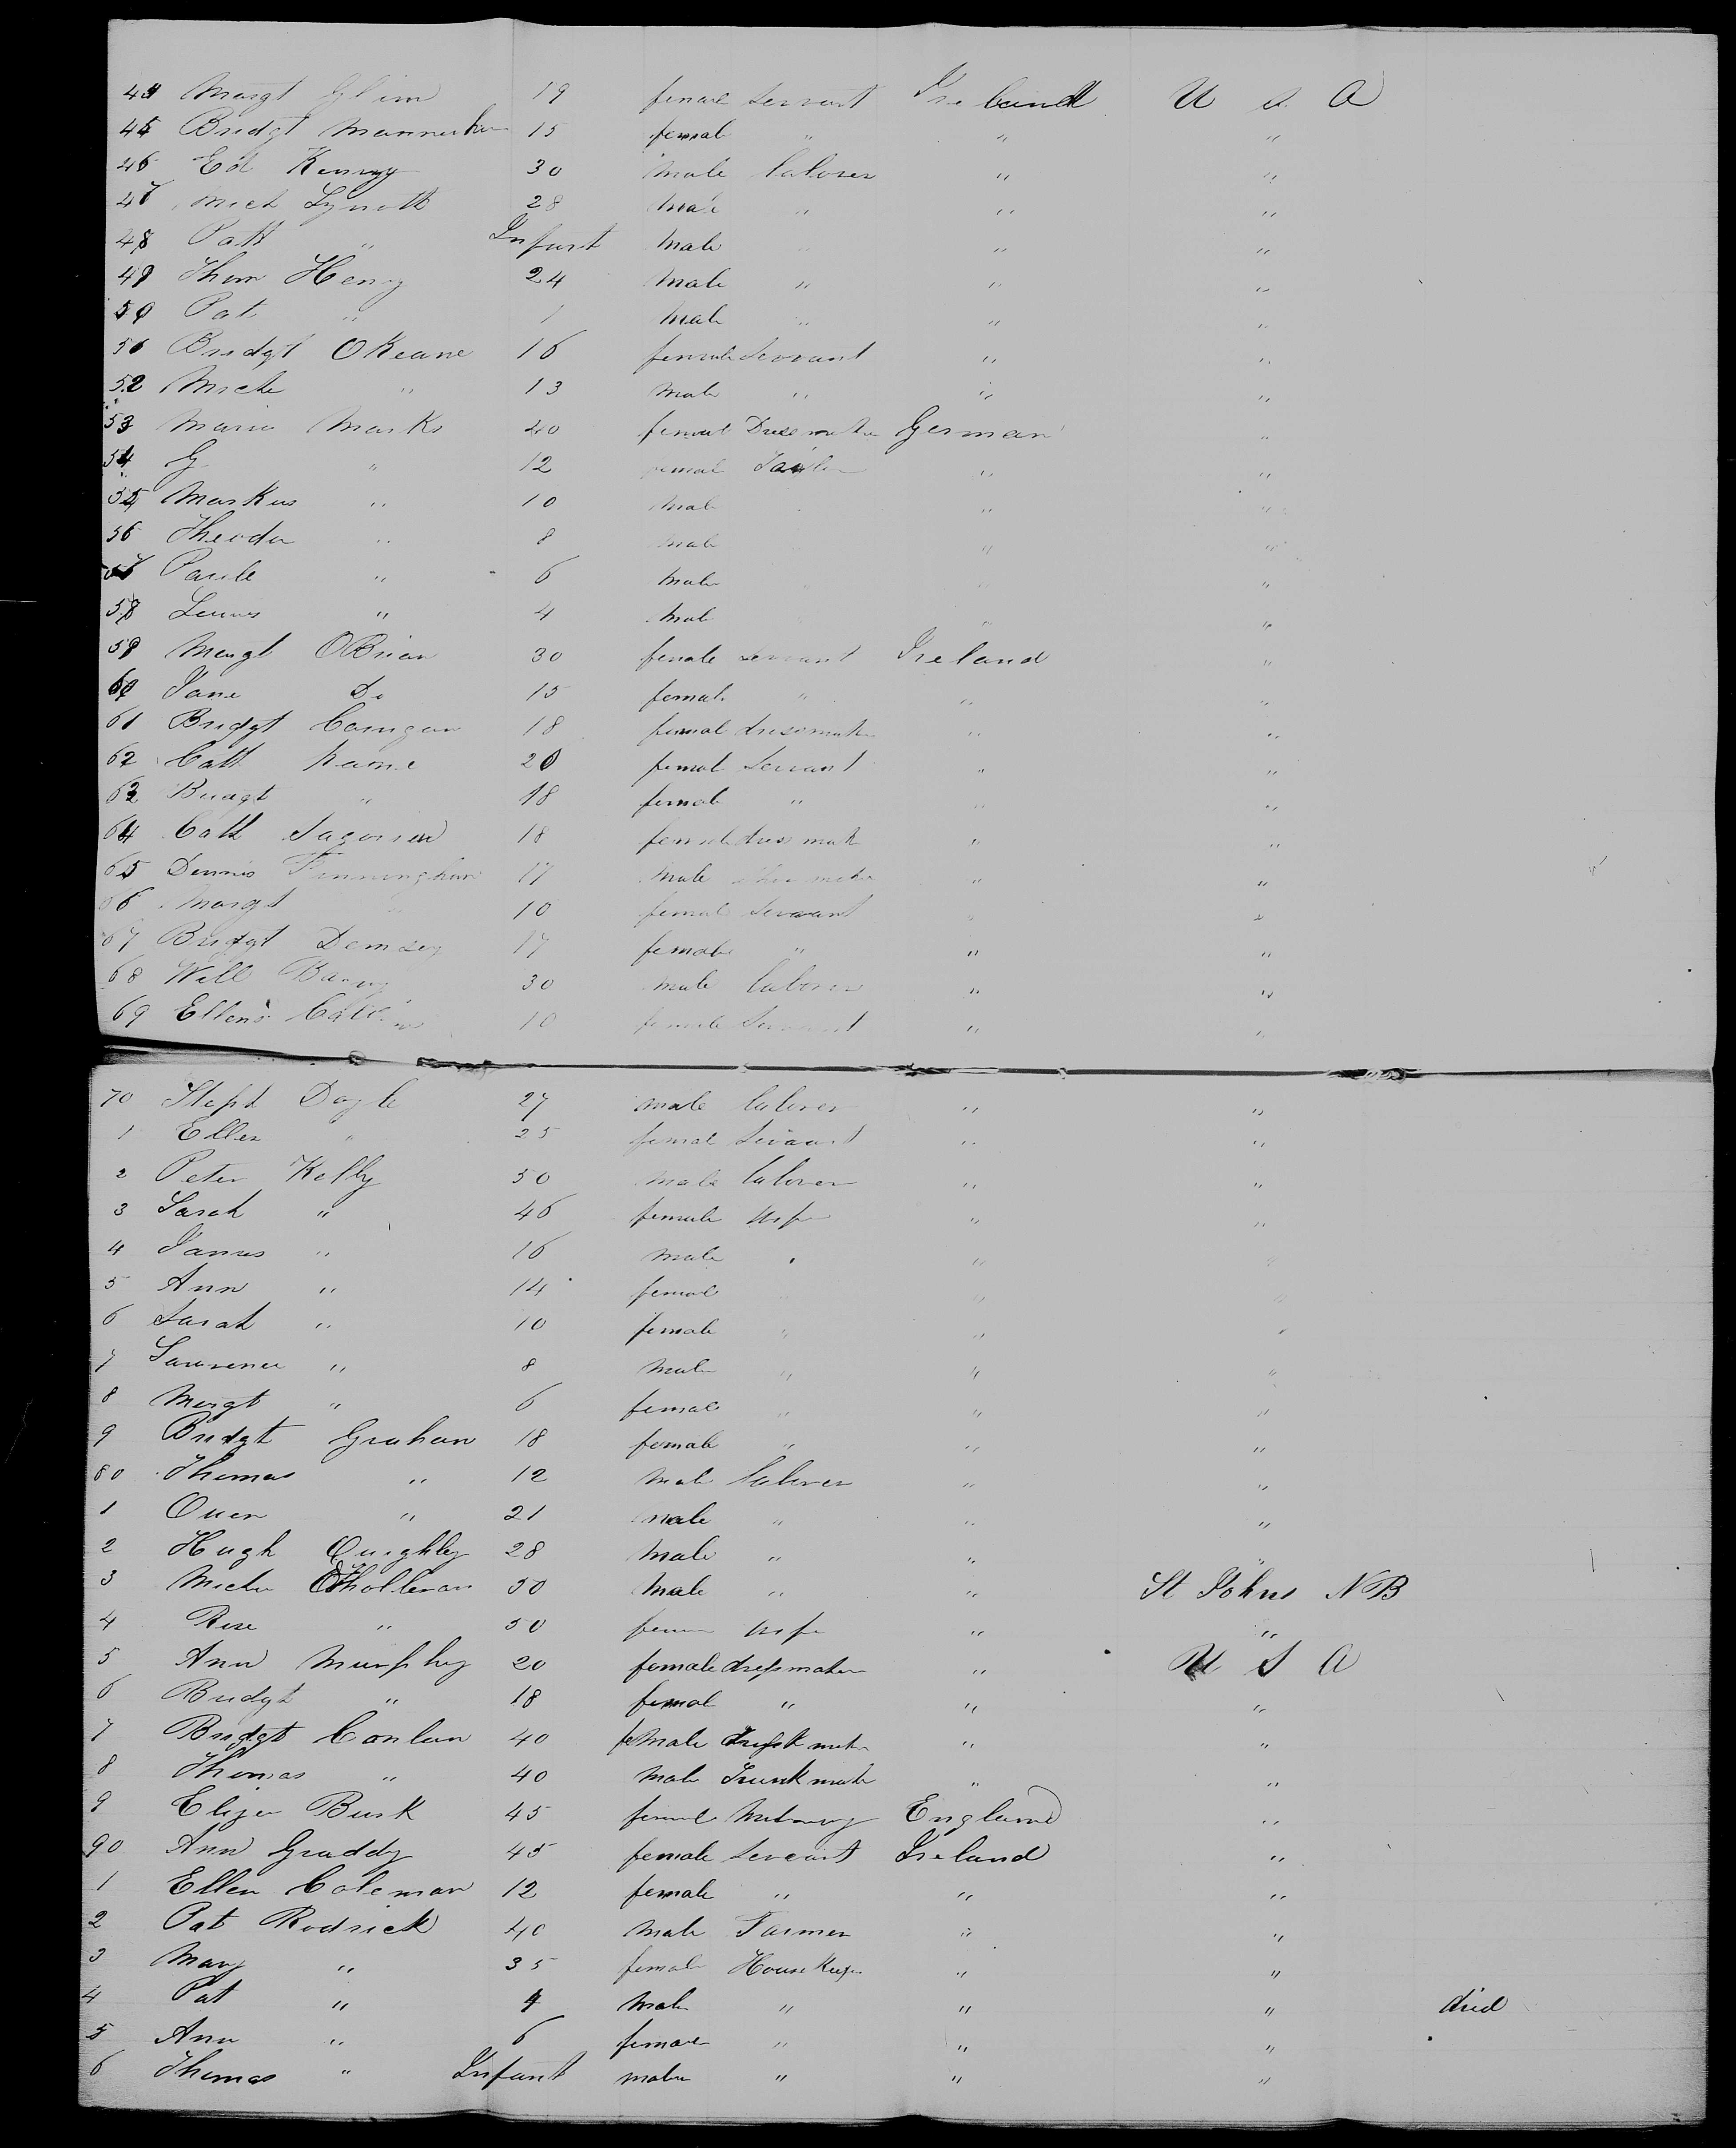 44 Margt Glim 19 female Servant Ireland U S A
45 Bridgt 15 femal " " "
46 Ed Kenny 30 male laborer " "
47 Mich Lynott 28 male " " "
48 Patt " Infant Male " "
49 Thom Henry 24 Male " " "
50 Pat " 1 Male " " "
51 Bridgt OKeane 16 female Servant " "
52 Miche " 13 Male " " "
53 Maria Marks 40 femal Dressmaker German "
54 G " 12 femal " "
55 Markus " 10 Male " "
56 Theodor " 8 male " "
57 Paule " 6 Male "
58 Louis " 4 Male " "
59 Margt OBrian 30 female Servant Ireland "
60 Jane Do 15 female " " "
61 Bridgt Corrigan 18 femal dressmaker " "
62 Cath Kane 20 female Servant " "
63 Bridgt " 18 female " " "
64 Cath 18 female dress maker " "
65 Dennis 17 Male Shoe maker " "
66 Margt " 10 femal Servant " "
67 Bridgt Demsey 17 female " " "
68 Will Barry 30 male laborer " "
69 Ellen 10 female Servant " "
70 Steph Doyle 27 male laborer " "
1 Ellen " 25 femal Servant " "
2 Peter Kelly 50 male laborer " "
3 Sarah " 46 female wife " "
4 James " 16 male " " "
5 Ann " 14 femal " "
6 Sarah " 10 female " " "
7 Lawrence " 8 Male " " "
8 Margt " 6 femal " " "
9 Bridgt Graham 18 female " " "
80 Thomas " 12 Male laborer " "
1 Owen " 21 male " " "
2 Hugh Quighley 28 Male " " "
3 Miche OHolleran 50 Male " " St Johns NB
4 Rose " 50 femm wife " "
5 Ann Murphy 20 female dressmaker " U S A
6 Bridgt " 18 femal " " "
7 Bridgt Conlan 40 female maker " "
8 Thomas " 40 Male Trunk maker " "
9 Eliza Burk 45 female England "
90 Ann Graddy 45 female Servant Ireland "
1 Ellen Coleman 12 female " " "
2 Pat Rodrick 40 Male Farmer " "
3 Mary " 35 female House Keeper " "
4 Pat " 4 Male " " " died
5 Ann " 6 female " " "
6 Thomas " Infant male " " "